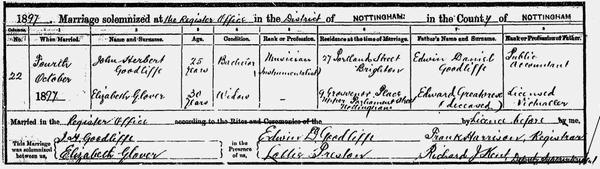 1897. Marriage solemnized at the Register Office in the District of NOTTINGHAM in the County of NOTTINGHAM
Columns:— No. When Married. Name and Surname. Age. Condition. Rank or Profession. Residence at the time of Marriage. Father's Name and Surname. Rank or Profession of Father.
22 Fourth October 1897 John Herbert Goodliffe 25 years Bachelor Musician Instrumentalist 27 Portland Street Brighton Edwin Daniel Goodliffe Public Accountant
Elizabeth Glover 30 years Widow 9 Grosvenor Place Upper Parliament Street Nottingham Edward Greatorex (deceased) Licensed Victualler
Married in the Register Office according to the Rites and Ceremonies of the by Licence before by me,
This Marriage was solemnized between us, J. H. Goodliffe Elizabeth Glover in the Presence of us, Edwin D Goodliffe Lottie Preston Frank Harrison, Registrar
Richard J Kent, Deputy Superintendent